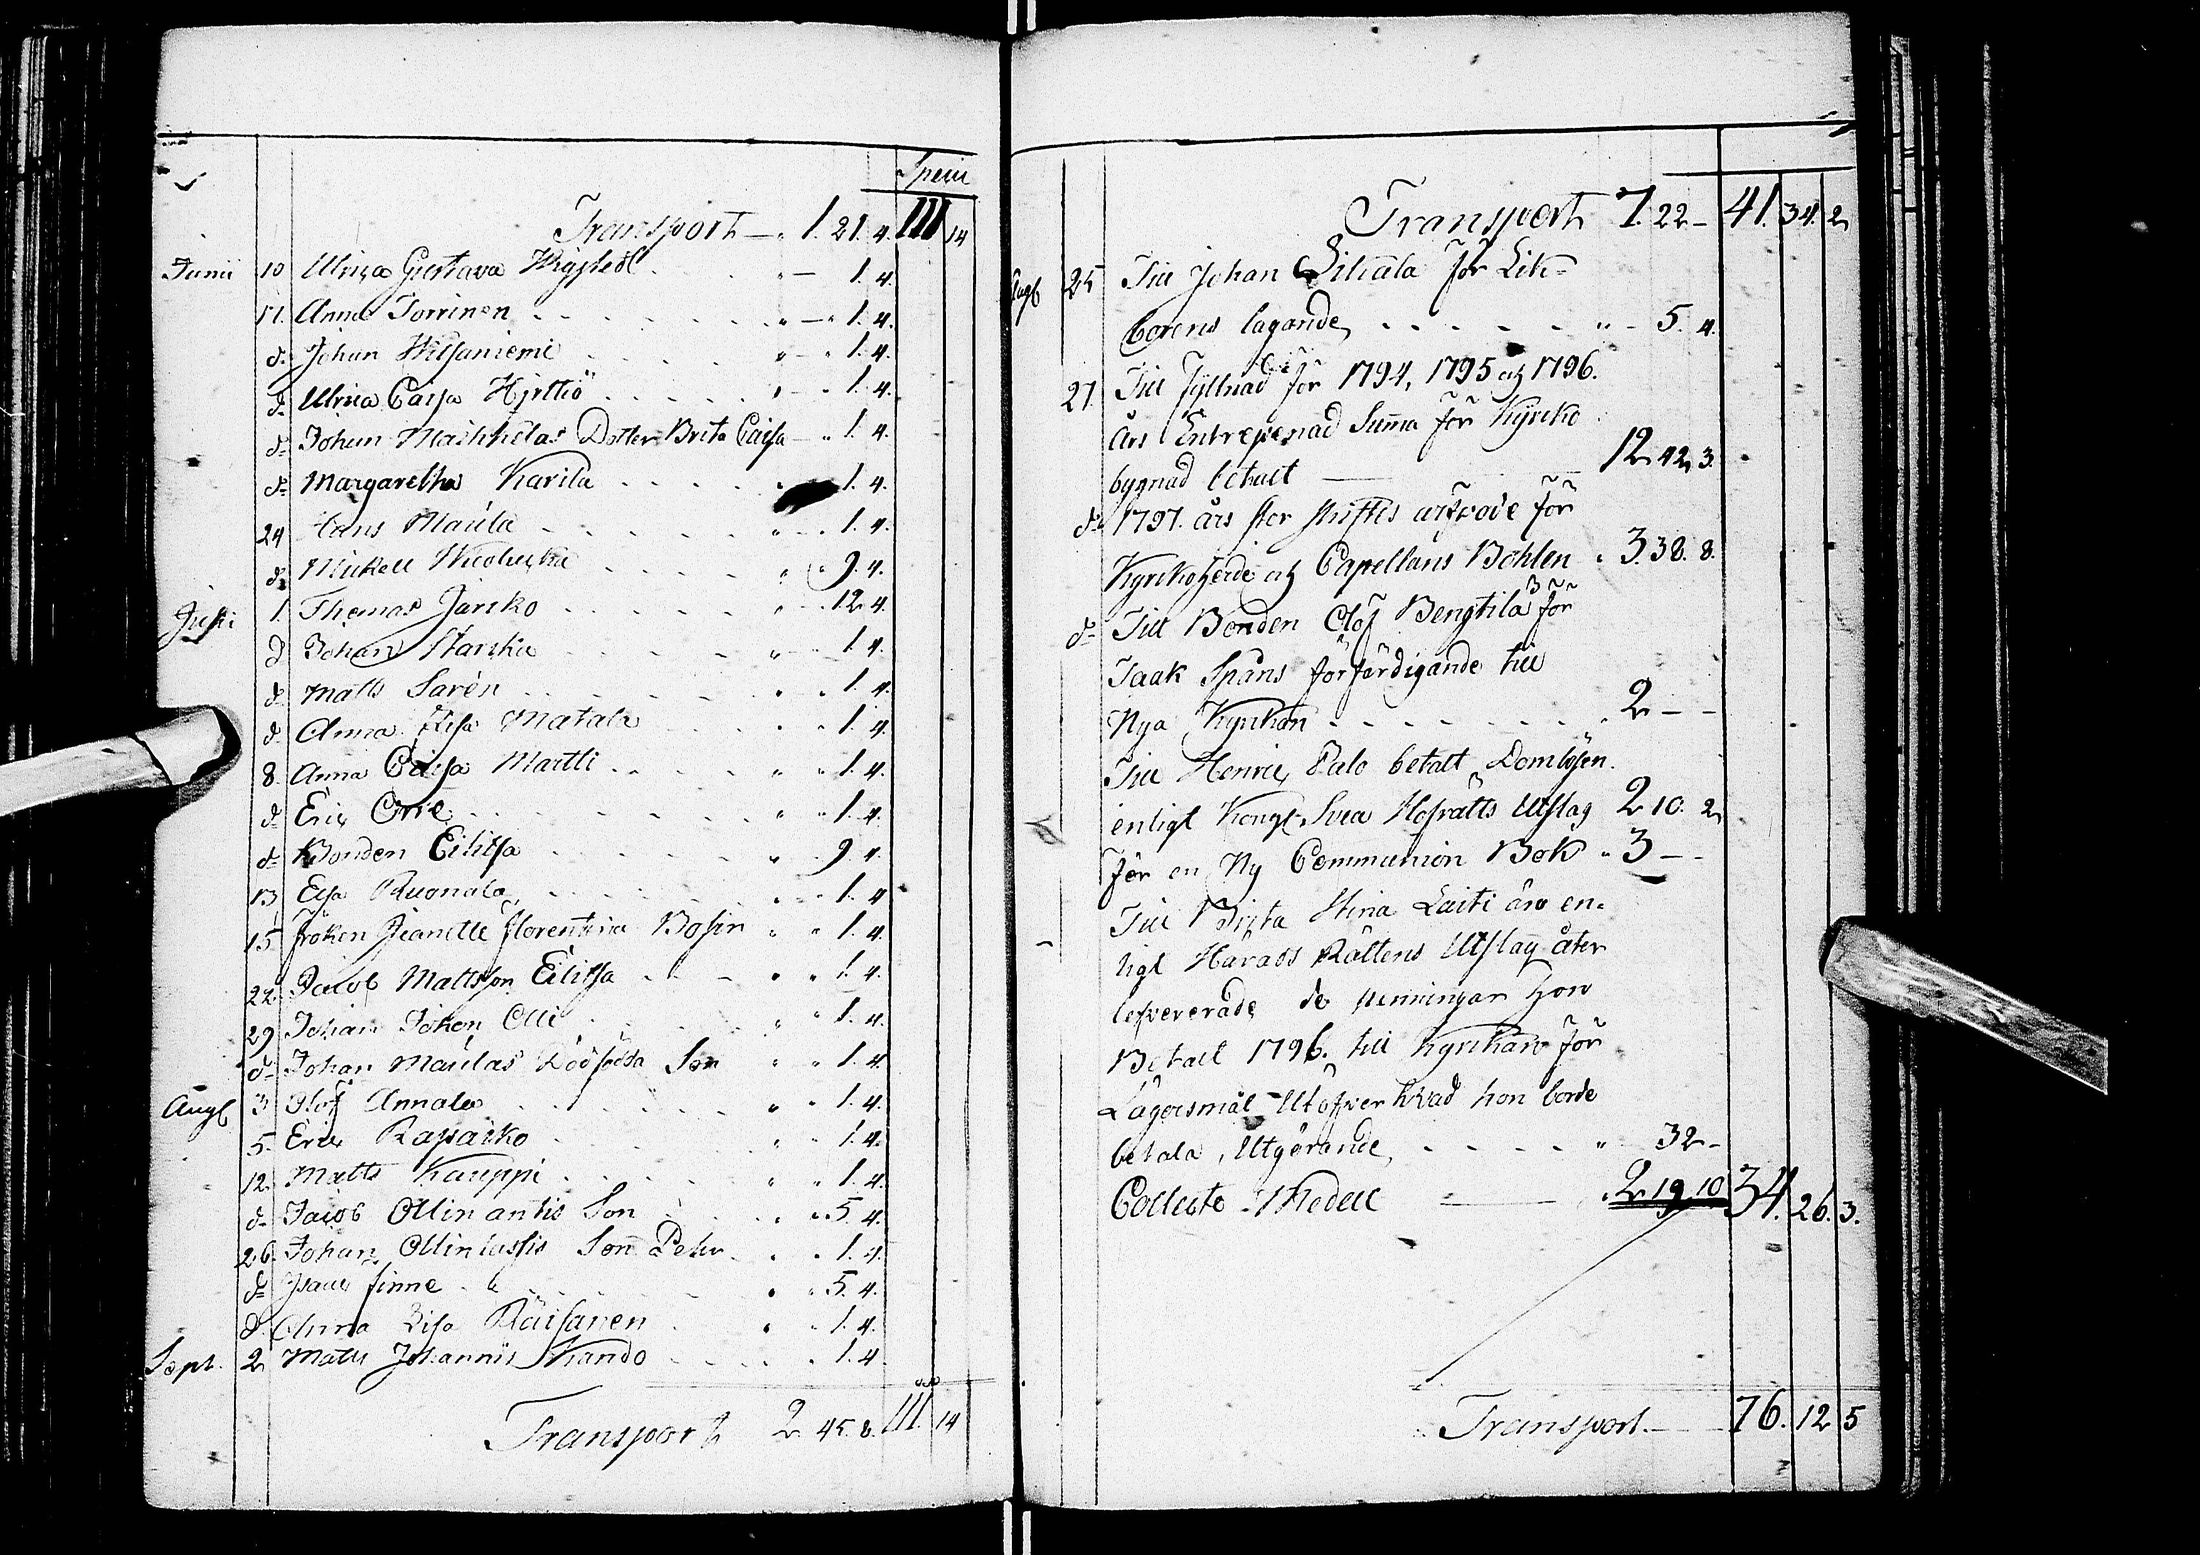 Specie
Transport 1. 21. 4. 111 14
Junii 10 Ulrica Gustava 1. 4.
17. Anna Torrinen 1. 4.
d:o Johan Wilsaniemi 1. 4.
d:o Ulrica Caisa Hjrttiö 1. 4.
d:o Johan Maikkelas Dotter Brita Caisa 1. 4.
d:o Margaretha Karila 1. 4.
24 Hans Maula 1. 4.
d:o Mickell 9. 4.
Julii 1. Thomas Jarsko 12. 4.
d:o Johan Starcka 1. 4.
d:o Matts Sarén 1. 4.
d:o Anna Lisa Matala 1. 4.
8. Anna Caisa Martti 1. 4.
d:o Eric Orre 1. 4.
d:o Bonden Eilitsa 9 4.
13 Elsa Ruonala 1. 4
15 fröken Jeanette florentina Bosin 1. 4.
22 Jacob Mattsson Eilitsa 1. 4.
29 Johan Johan Olli 1. 4.
d:o Johan Maulas Dödfödda Son 1. 4.
Augt 3 Olof Annala 1. 4.
5. Eric Rapacko 1. 4.
12 Matts Kauppi 1. 4.
d:o Jacob Ollin antis Son 5. 4.
26. Johan Ollin Son Pehr 1. 4.
d:o Isaac finne 5. 4.
d:o Anna Lisa Räisänen 1. 4.
Sept. 2 Matts Johannis Kando 1. 4.
Transport 2 45. 8. 111. 14
Transport 7. 22 - 41. 34. 2
Augt 25 Till Johan för Lik-
borens lagande 5. 4.
27. Till fyllnad för 1794, 1795 och 1796.
års Entrepenad Summa för Kyrcko
bygnad betalt 12. 42. 3.
d:o 1797. års stor skiftes arfvode för
Kyrkoherde och Capellans Bohlen 3. 38. 8.
d:o Till Bonden Olof Bengtila för
Taak Spåns förfärdigande till
Nya Kyrkan 2 - -
Till Henric Palo betalt Domlösen
enligt Kongl. Svea Hofrätts Utslag 2 10. 2
för en Ny Communion Bok 3 - -
Till Brita Stina Laiti än en-
ligt Härads Rättens Utslag åter
lefvererade de penningar hon
Betalt 1796. till Kyrkan för
Lägersmål Utöfver hvad hon borde
betala, Utgörande, 32 -
Collecte Medell 2. 19. 10 34. 26. 3.
Transport 76. 12 5